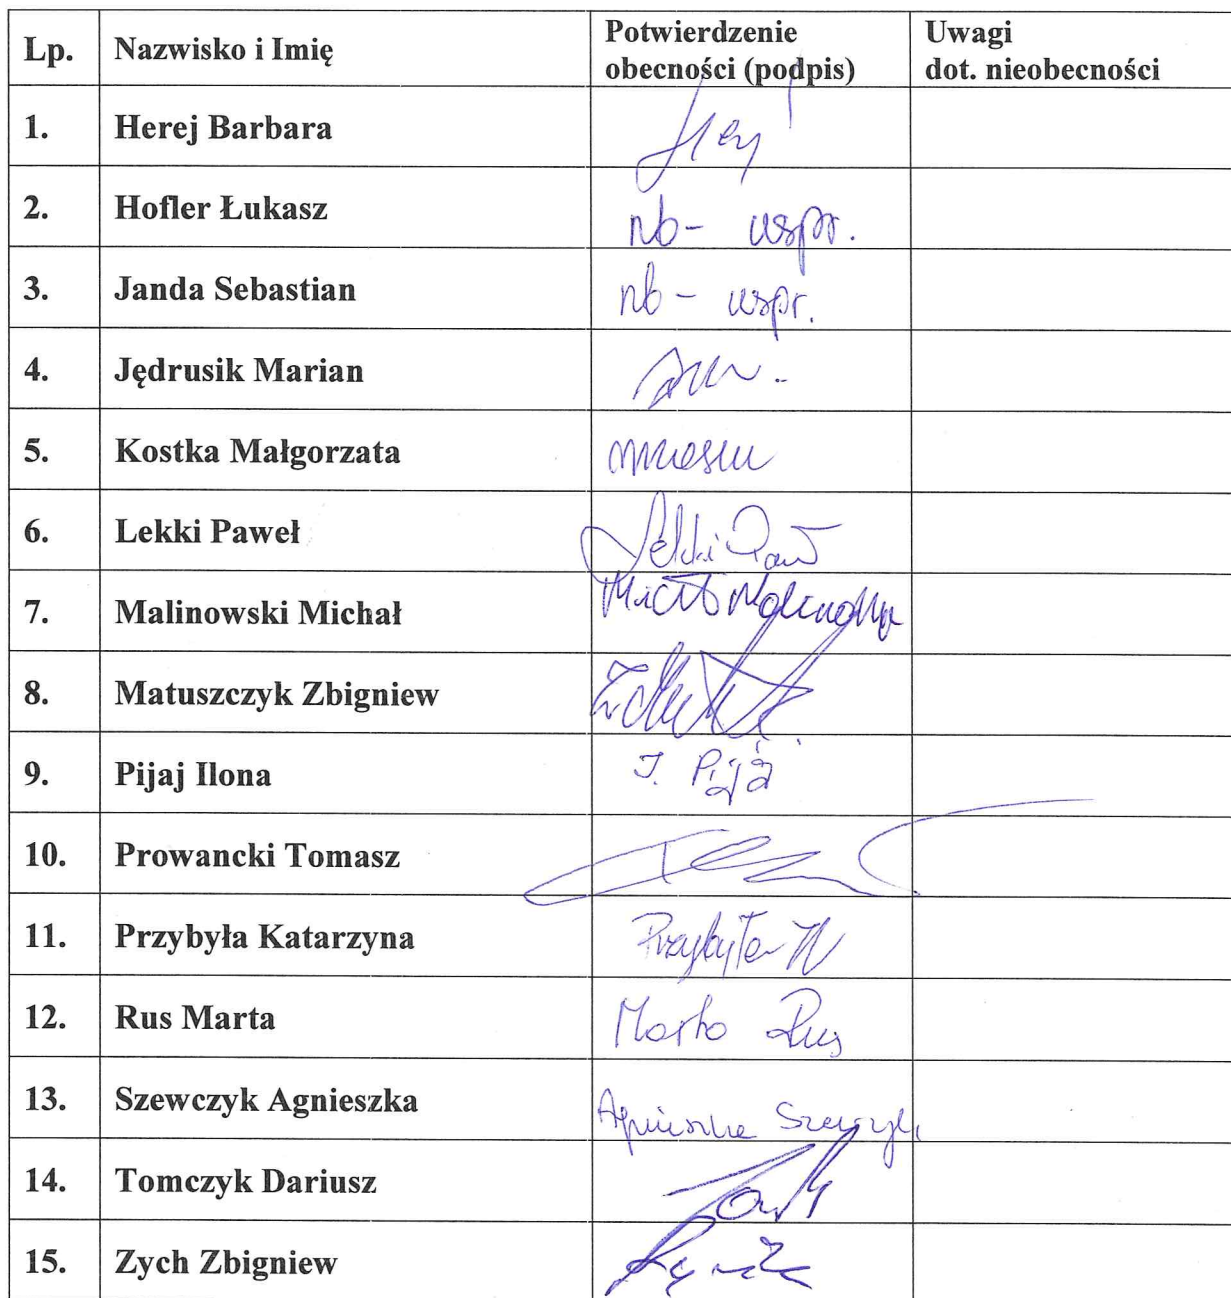 Lp. Nazwisko i Imię Potwierdzenie obecności (podpis) Uwagi dot. nieobecności
1. Herej Barbara
2. Hofler Łukasz nb- uspr.
3. Janda Sebastian nb - uspr.
4. Jędrusik Marian
5. Kostka Małgorzata
6. Lekki Paweł Lekki
7. Malinowski Michał
8. Matuszczyk Zbigniew
9. Pijaj Ilona I. Pijaj
10. Prowancki Tomasz
11. Przybyła Katarzyna Przybyła
12. Rus Marta Marta Rus
13. Szewczyk Agnieszka Agnieszka Szewczyk
14. Tomczyk Dariusz
15. Zych Zbigniew